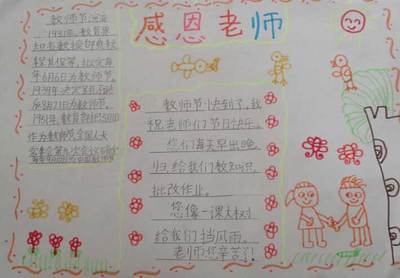 感恩老师
教师节演变
1931年，教育界
知名教授邰爽秋
程其保等，拟定每
年6月6日为教师节。
1939年决定孔诞
辰8月27日为教师节。
1951年，教育部
作为教师节，全国人大
教师节快到了，我
祝老师们节日快乐。
您们每天早出晚
归，给我们教知识，
批改作业。
您像一课大树
给我们挡风雨。
老师您辛苦了！